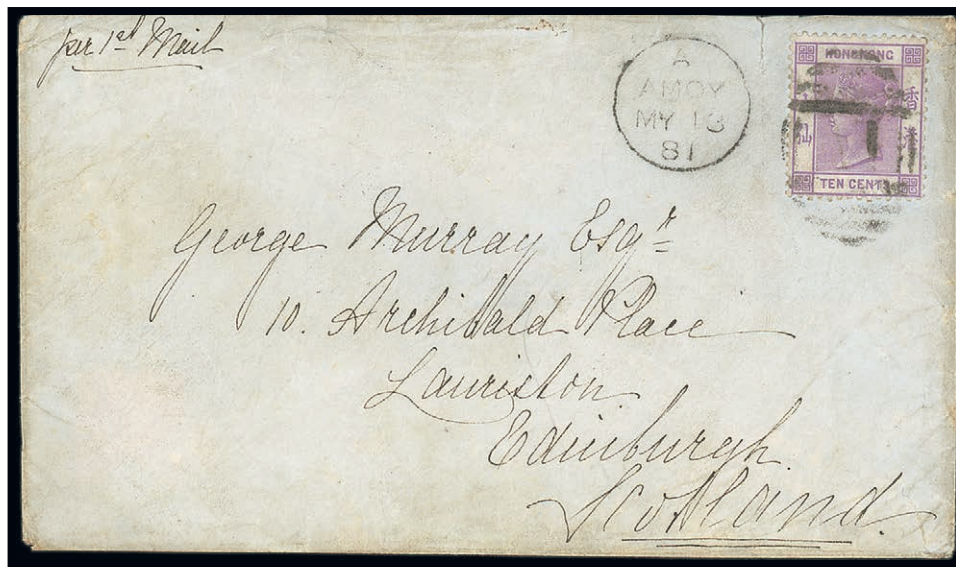 per 1st Mail
A
AMOY
MY 13
81
HONG KONG
香
仙
TEN CENTS
George Murray Esqr
10. Archibald Place
Lauriston
Edinburgh.
Scotland.